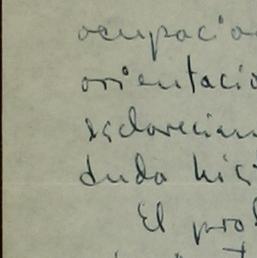 ocupacio
orientacio
esclarecian
duda hici
El prob